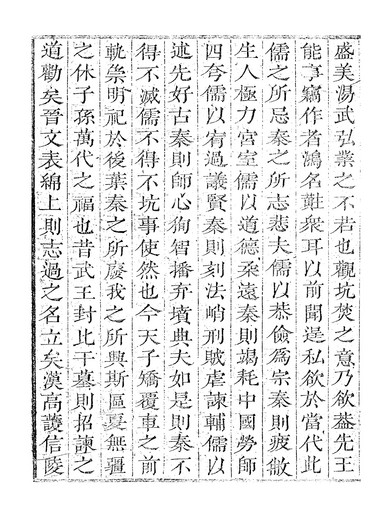 盛美湯武弘業之不若也觀坑焚之意乃欲蓋先王
能享竊作者鴻名黈衆耳以前聞逞私欲於當代此
儒之所忌秦之所志悲夫儒以恭儉爲宗秦則疲徼
生人極力宮室儒以道德柔遠秦則竭耗中國勞師
四夸儒以宥過議賢秦則刻法峭刑賊虐諫輔儒以
述先好古秦則師心徇智播弃墳典夫如是則秦不
得不滅儒不得不坑事使然也今天子矯覆車之前
軌崇明祀於後葉秦之所廢我之所興斯區夏無疆
之休子孫萬代之福也昔武王封比干墓則招諫之
道勸矣晉文表綿上則志過之名立矣漢高護信陵